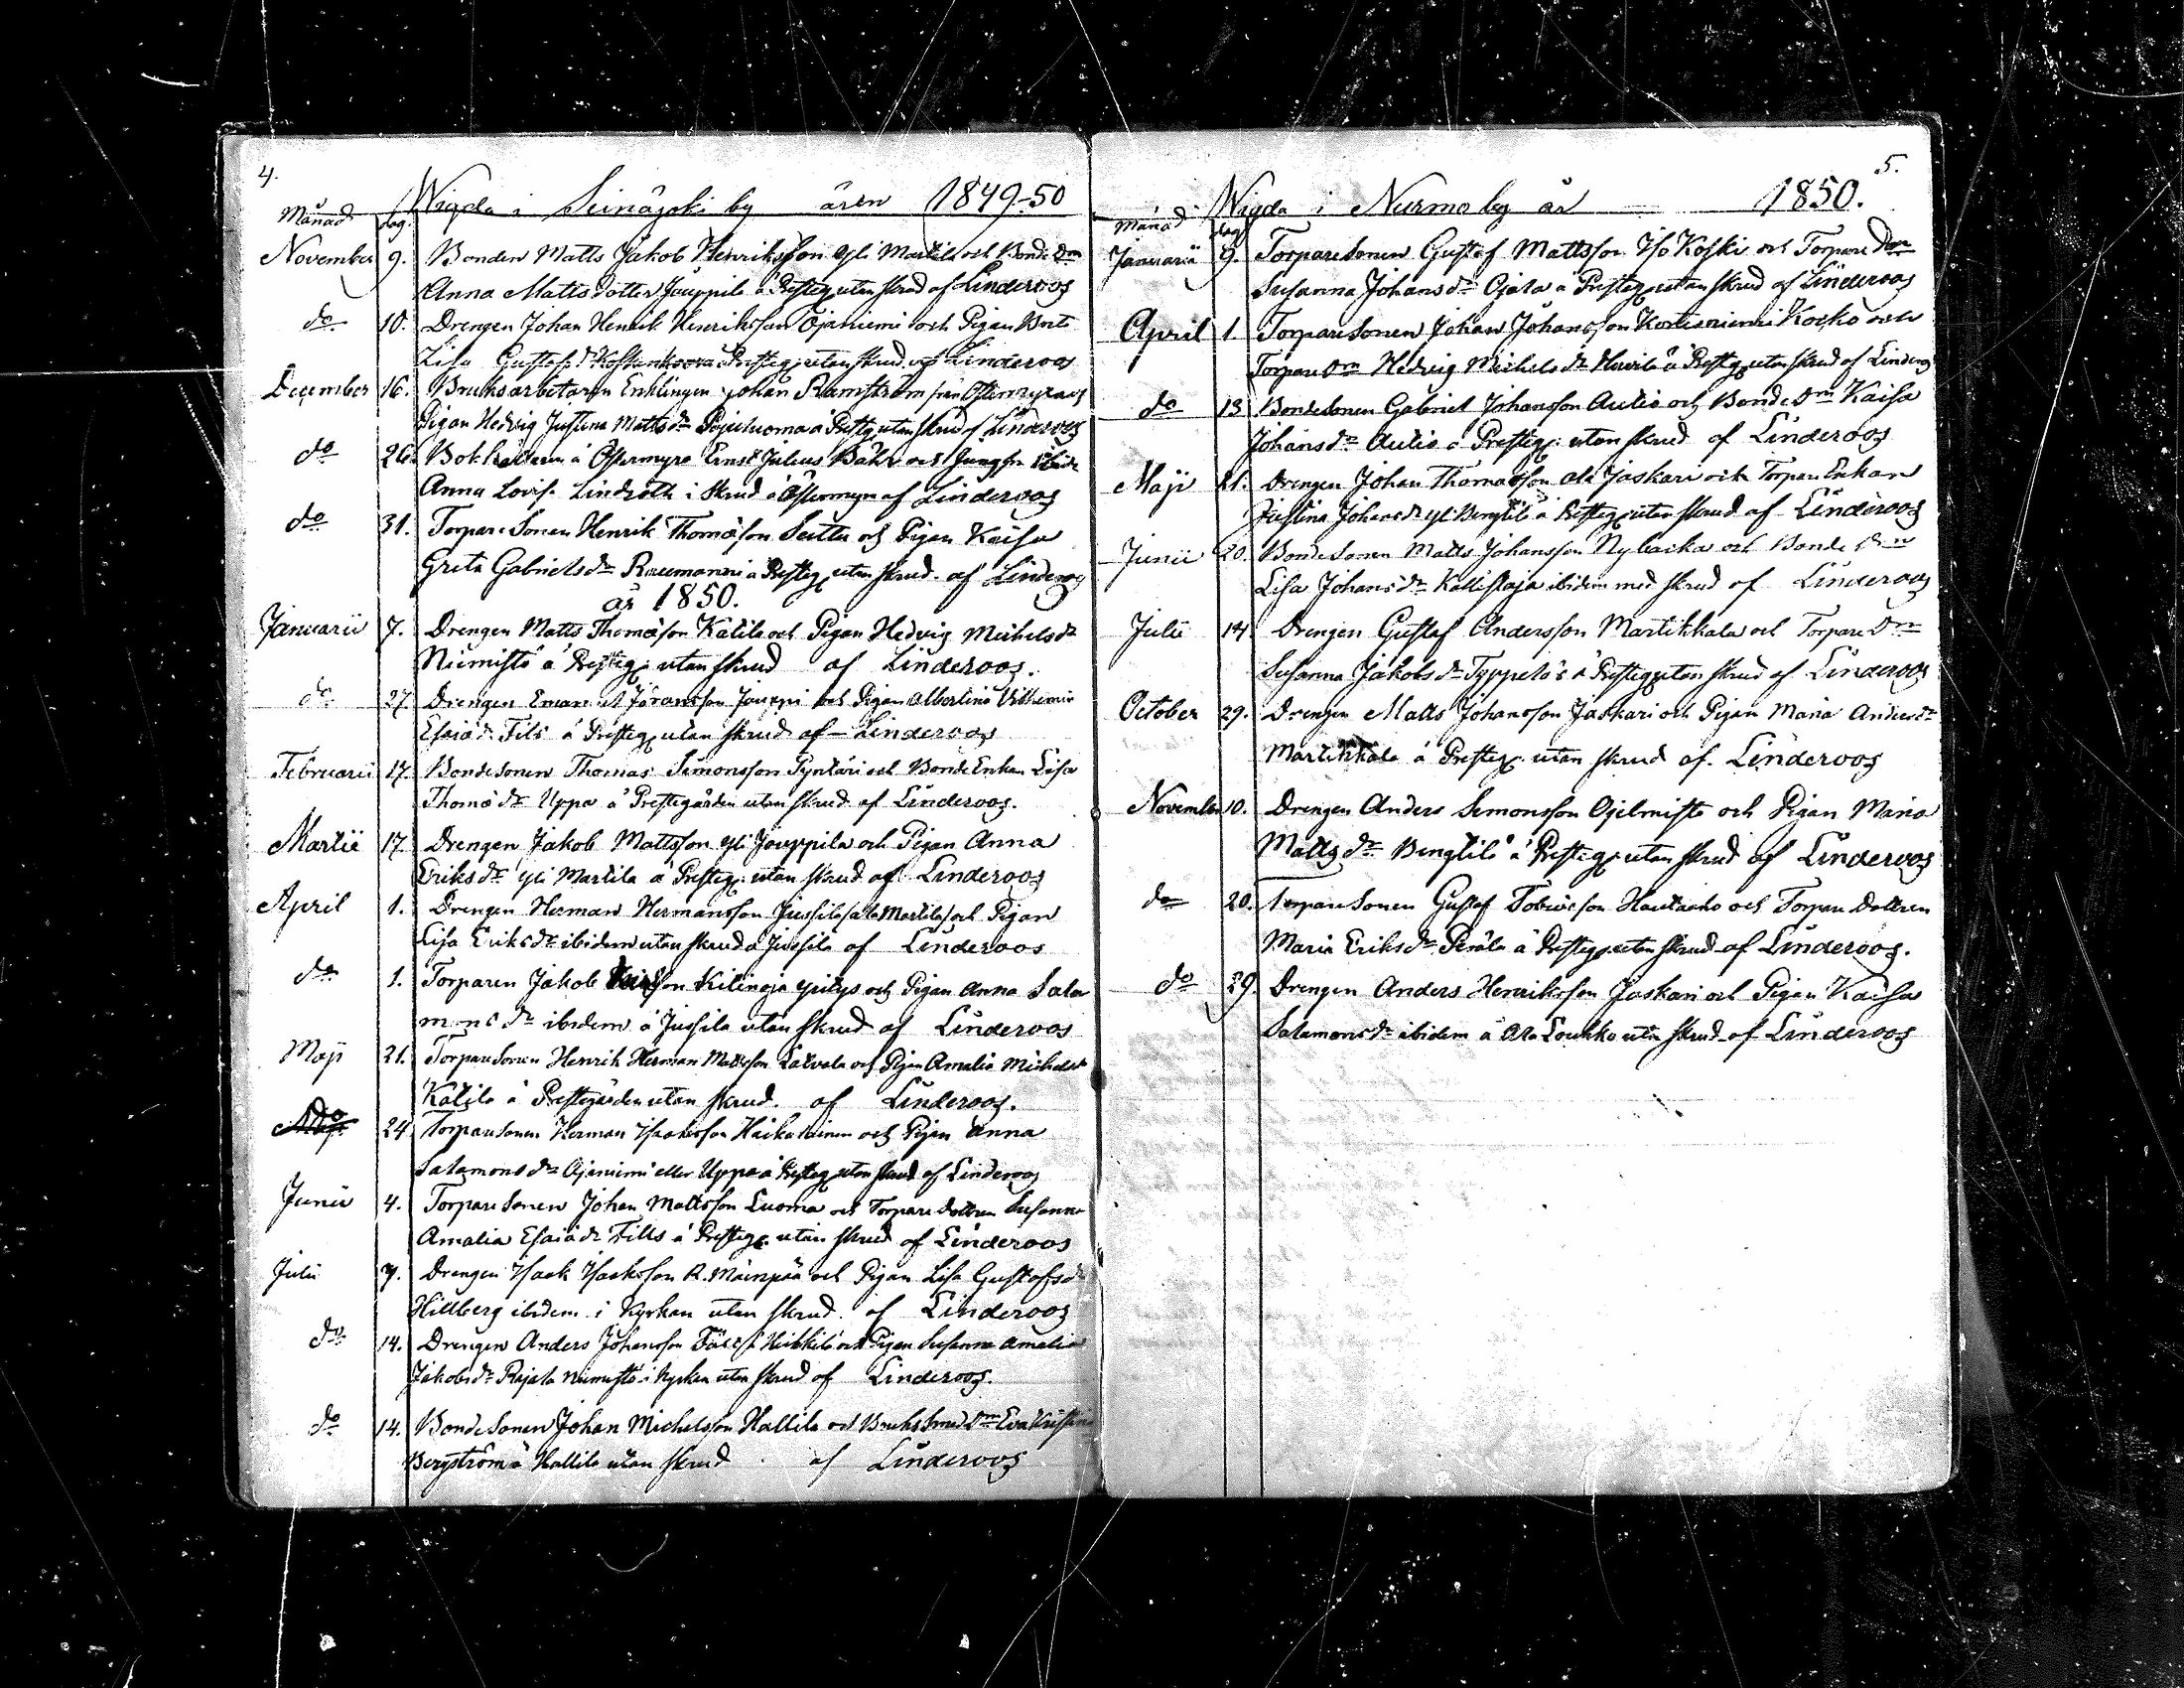 4.
Wigda i Seinäjoki by åren 1849-50
Månad dag.
November 9. Bonden Matts Jakob Henriksson Yli Martila och Bonde Drn
Anna Matts dotter Jouppila å Presteg utan skrud af Linderoos
do 10. Drengen Johan Henrik Henriksson Ojaniemi och Pigan
Lisa Gustafsdr å Presteg utan skrud af Linderoos
December 16. Bruksarbetaren Enklingen Johan Ramström från Östermyra och
Pigan Hedvig Justina Mattsdr Pajuluoma å Presteg utan skrud af Linderoos
do 26. Bokhållaren å Östermyra Ernst Julius Bähr och Jungfru ibid.
Anna Lovisa Lindroth i skrud å Östermyra af Linderoos
do 31. Torpare Sonen Henrik Thomasson Seittu och Pigan Kaisa
Greta Gabrielsdr Raumanni å Presteg utan skrud af Linderoos
år 1850.
Januarii 7. Drengen Matts Thomasson Katila och Pigan Hedvig Michelsdr
Niemistö å Presteg. utan skrud af Linderoos.
do 27 Drengen Emanuel Göransson Jouppi och Pigan Albertina Vilhelmina
Esaiædr Fils å Presteg utan skrud af Linderoos
Februarii 17. Bondesonen Thomas Simonsson Pyntäri och Bonde Enkan Lisa
Thomædr Uppa å Prestegården utan skrud af Linderoos.
Martii 17 Drengen Jakob Mattsson Yli Jouppila och Pigan Anna
Eriksdr Yli Martila å Presteg. utan skrud af Linderoos
April 1. Drengen Herman Hermansson Jussila /ala Martila/ och Pigan
Lisa Eriksdr ibidem utan skrud å Jussila af Linderoos
do 1. Torparen Jakob Kitinoja yritys och Pigan Anna Salo
mons dr ibidem å Jussila utan skrud af Linderoos
Maji 21. Torpare Sonen Henrik Herman Mattsson Latvala och Pigan Amalia Michelsdr
Katila å Prestegården utan skrud. af Linderoos.
do 24 Torparesonen Herman Isaksson Haikolainen och Pigan Anna
Salamonsdr Ojaniemi eller Uppa å Presteg utan skrud af Linderoos
Junii 4. Torpare Sonen Johan Mattsson Luoma och Torpare dottren Susanna
Amalia Esaiædr Fills å Presteg. utan skrud af Linderoos
Julii 7. Drengen Isaak Isaksson R. Mäenpää och Pigan Lisa Gustafsdr
Hillberg ibidem i Kyrkan utan skrud. af Linderoos
do 14. Drengen Anders Johansson Heikkilä och Pigan Susanna Amalia
Jakobsdr Rajala Niemistö i Kyrkan utan skrud af Linderoos.
do 14. Bonde Sonen Johan Michelsson Hallila och Bruks Smed Drn Eva Kristina
Bergström å Hallila utan skrud af Linderoos
5.
Wigda i Nurmo by år 1850.
Månad dag
Januarii 9. Torparesonen Gustaf Mattsson Iso Koski och Torpare Drn
Susanna Johansdr Ojala å Presteg utan skrud af Linderoos
April 1. Torparesonen Johan Johansson Kortesniemi Kosko och
Torpare Drn Hedvig Michelsdr å Presteg utan skrud af Linderoos
do 13 Bondesonen Gabriel Johansson Autio och Bonde Drn Kaisa
Johansdr Autio å Presteg. utan skrud af Linderoos
Maji 21. Drengen Johan Thomasson Ala Jaskari och Torpare Enkan
Justina Johansdr Yli Bengtila å Presteg utan skrud af Linderoos
Junii 20. Bondesonen Matts Johansson Nybacka och Bonde drn
Lisa Johansdr Kallistaja ibidem med skrud af Linderoos
Julii 14 Drengen Gustaf Andersson Martikkala och Torpare Drn
Susanna Jakobsdr å Presteg utan skrud af Linderoos
October 29. Drengen Matts Johansson Jaskari och Pigan Maria Andersdr
Martikkala å Presteg. utan skrud af. Linderoos
November 10. Drengen Anders Simonsson och Pigan Maria
Matts dr Bengtila å Presteg utan skrud af Linderoos
do 20. Torpare Sonen Gustaf Tobiasson Hautaaho och Torpare Dottren
Maria Eriksdr Perälä å Presteg utan skrud af Linderoos.
do 29. Drengen Anders Henriksson Jaskari och Pigan Kaisa
Salamonsdr ibidem å Ala Loukko utan skrud af Linderoos